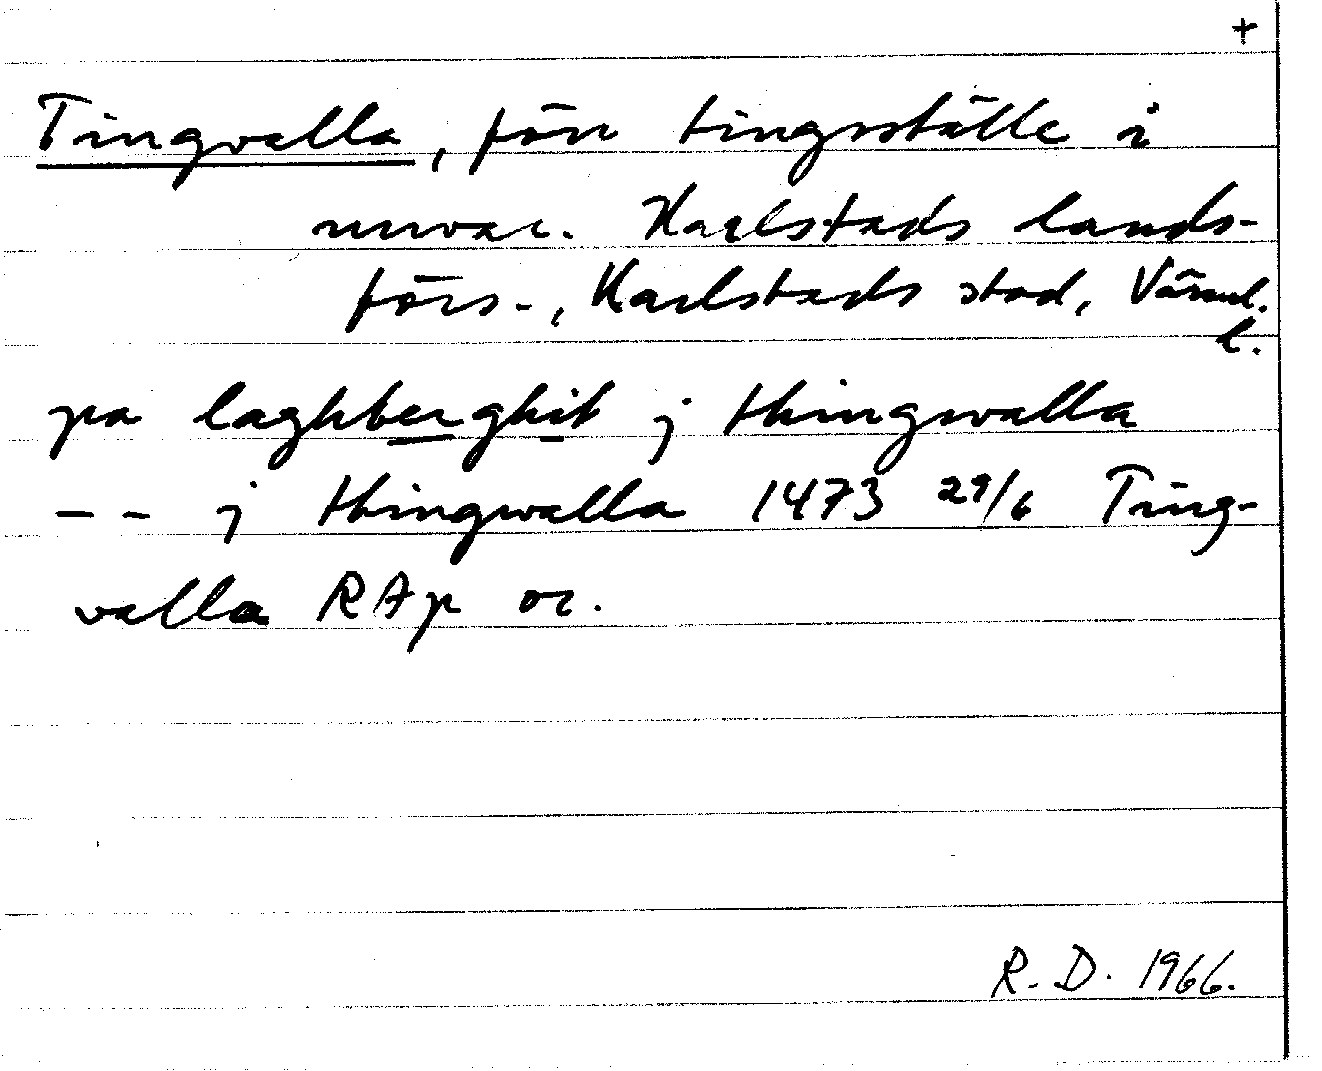 +
Tingvalla, förr tingsställe i
nuvar. Karlstads lands-
förs., Karlstads stad, Värml.
l.
pa laghberghit j thingwalla
-- j thingwalla 1473 29/6 Ting-
valla RAp or.
R. D. 1966.